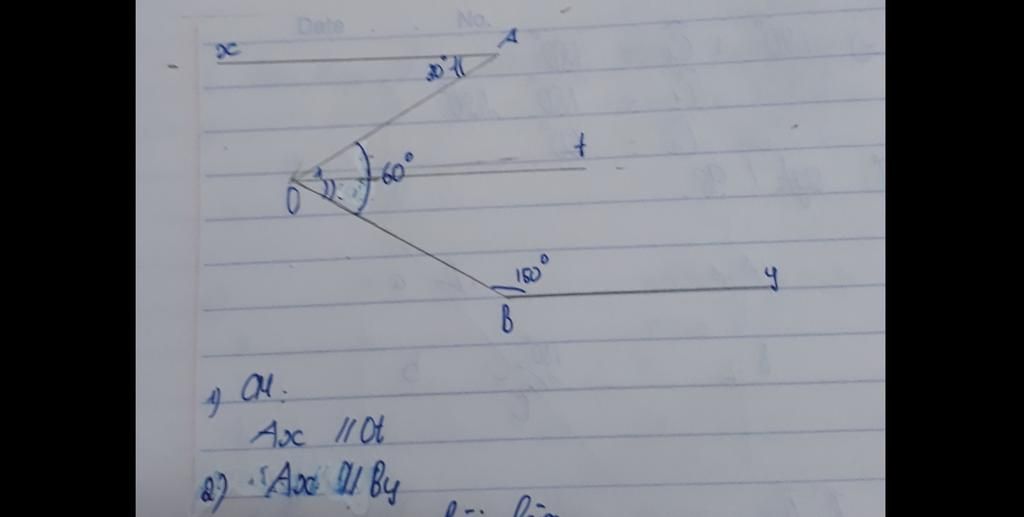 Date No.
x A
30°
t
60°
O
150°
y
B
1) CM:
Ax // Ot
2) Ax // By